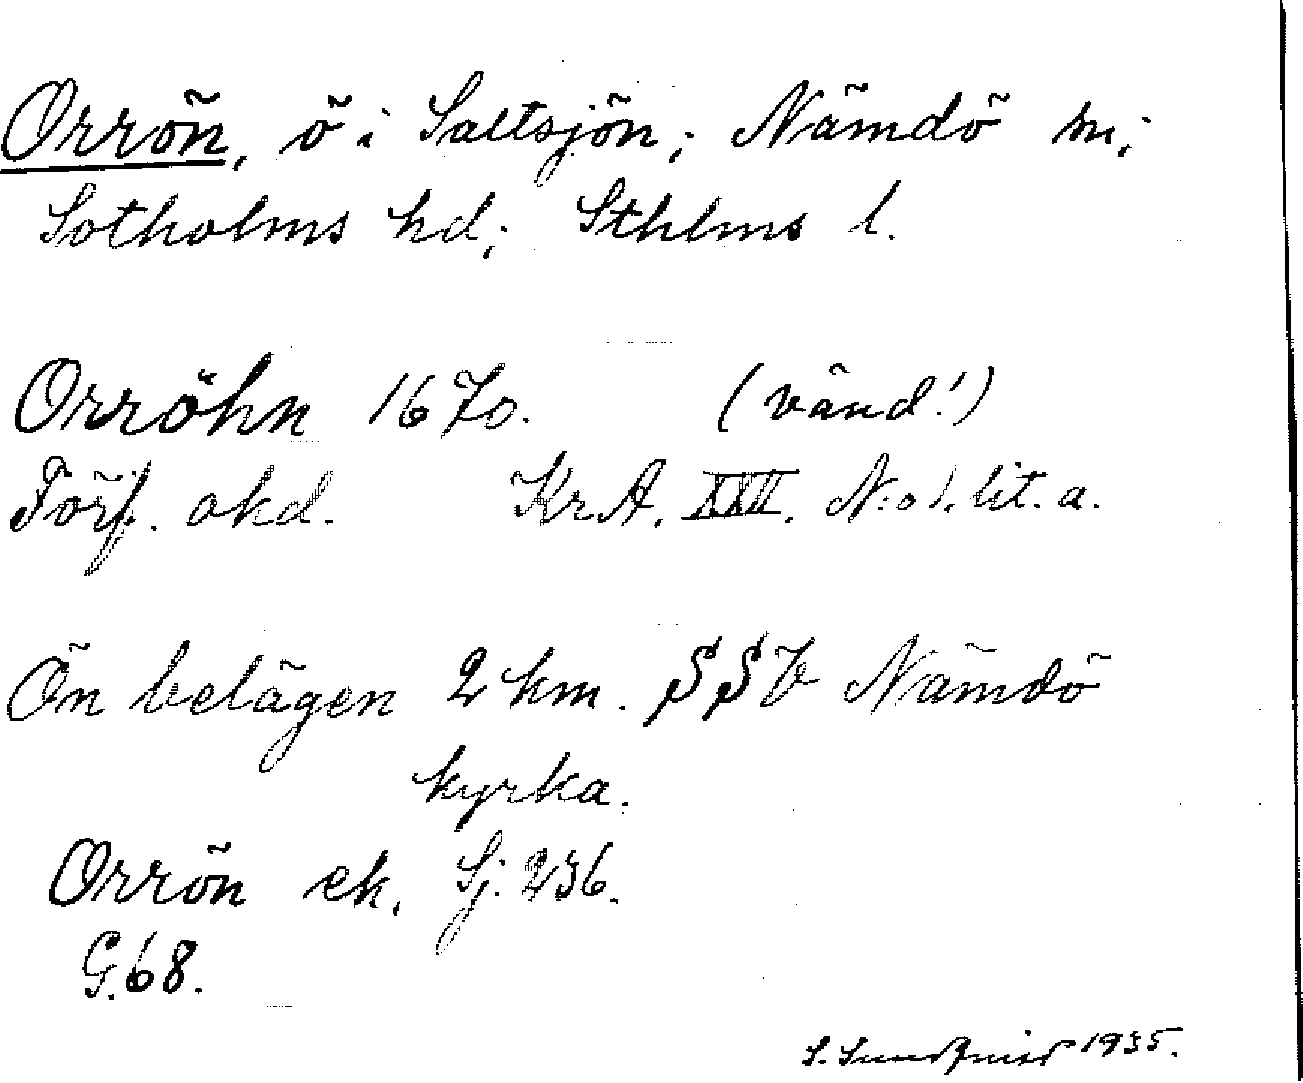 Orrön, ö i Saltsjön; Nämdö sn;
Sotholms hd; Sthlms l.
Orröhn 1670. (vänd!)
Förf. okd. KrA. XXII. N:o 1. lit. a.
Ön belägen 2 km. SSV Nämdö
kyrka.
Orrön ek. Sj. 236.
G. 68.
S. 1935.